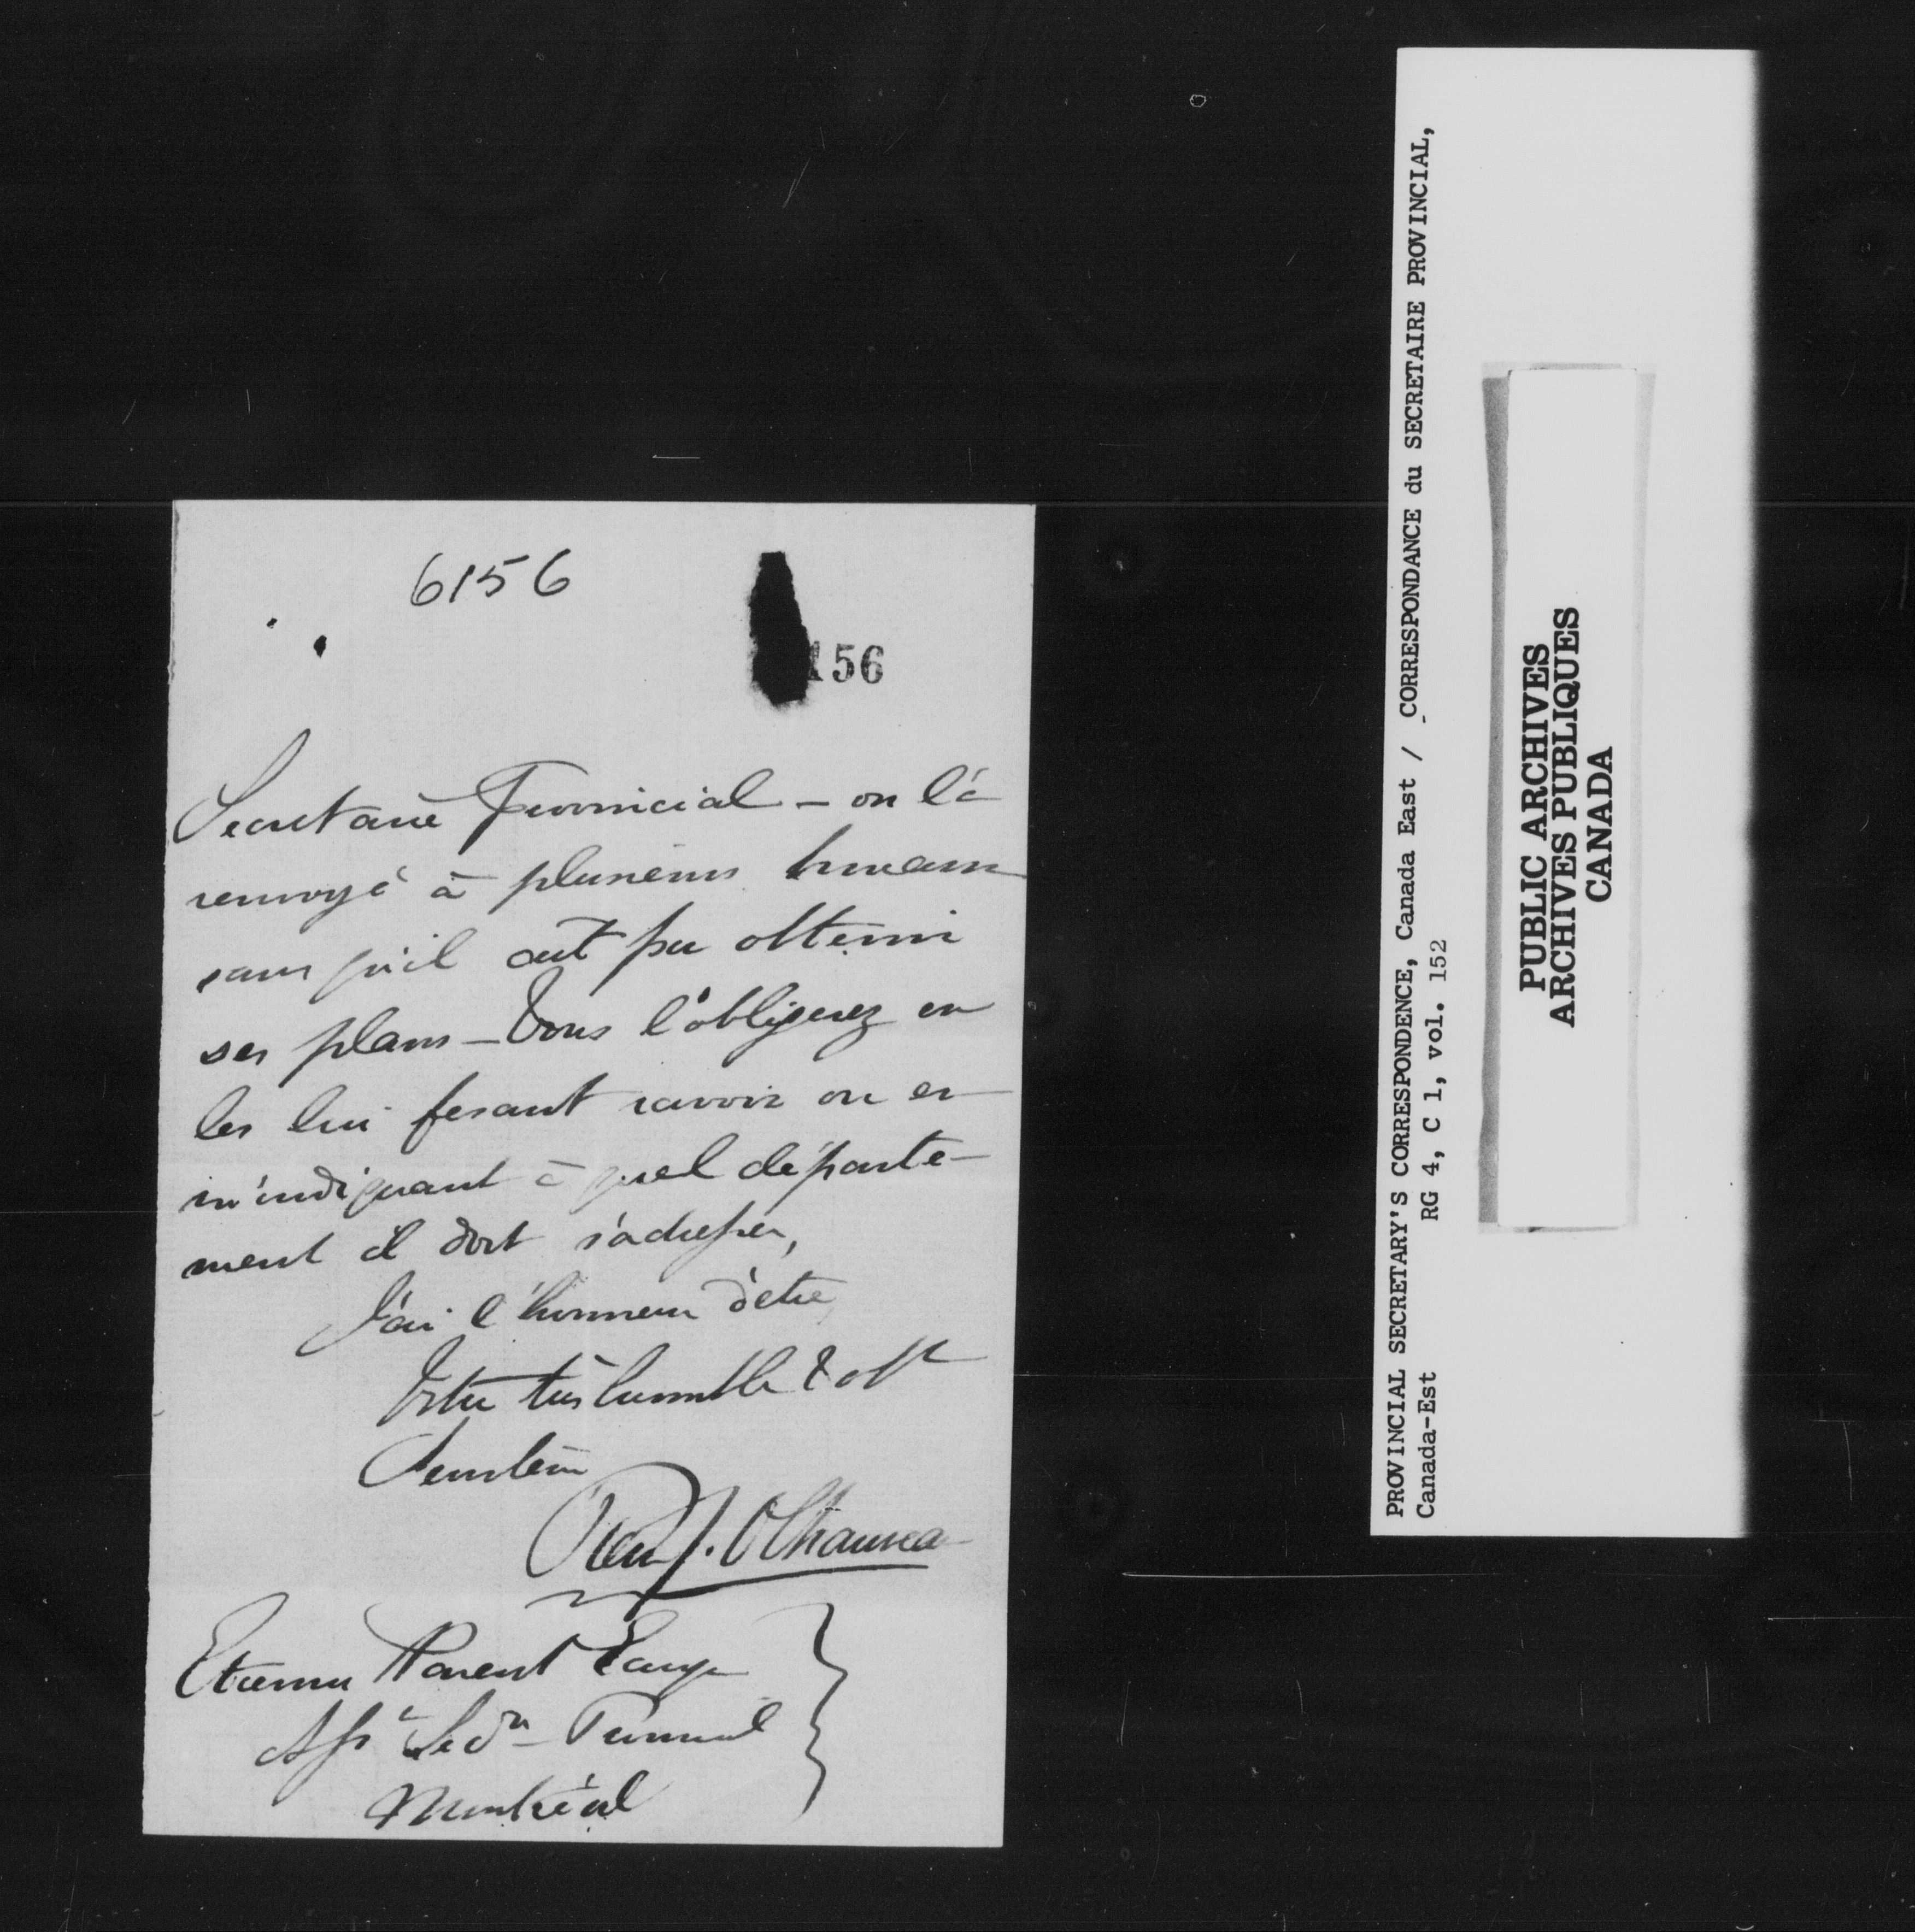 6156
156
Secretaire Provincial — on l'a
renvoyé à plusieurs bureaux
sans qu'il ait pu obtenir
ses plans — Vous l'obligerez en
les lui fesant ravoir ou en
m'indiquant à quel départe-
ment il doit s'adresser,
J'ai l'honneur d'être
Votre très humble & obt
Serviteur
Pierre J. O Chauveau
Etienne Parent Ecuyer
Asst Secre Provincial
Montréal
PROVINCIAL SECRETARY'S CORRESPONDENCE, Canada East / CORRESPONDANCE du SECRETAIRE PROVINCIAL,
Canada-Est RG 4, C 1, vol. 152
PUBLIC ARCHIVES
ARCHIVES PUBLIQUES
CANADA